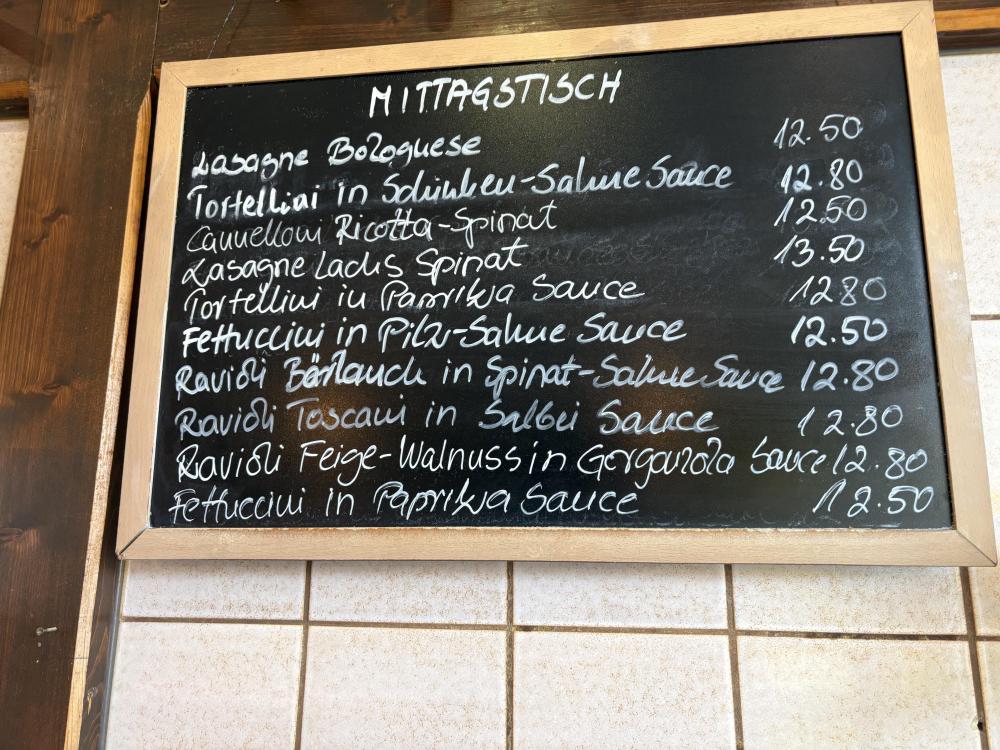 MITTAGSTISCH
Lasagne Bolognese 12.50
Tortellini in Schinken-Sahne Sauce 12.80
Cannelloni Ricotta-Spinat 12.50
Lasagne Lachs Spinat 13.50
Tortellini in Paprika Sauce 12.80
Fettuccini in Pilz-Sahne Sauce 12.50
Ravioli Bärlauch in Spinat-Sahne Sauce 12.80
Ravioli Toscani in Salbei Sauce 12.80
Ravioli Feige-Walnuss in Gorgonzola Sauce 12.80
Fettuccini in Paprika Sauce 12.50